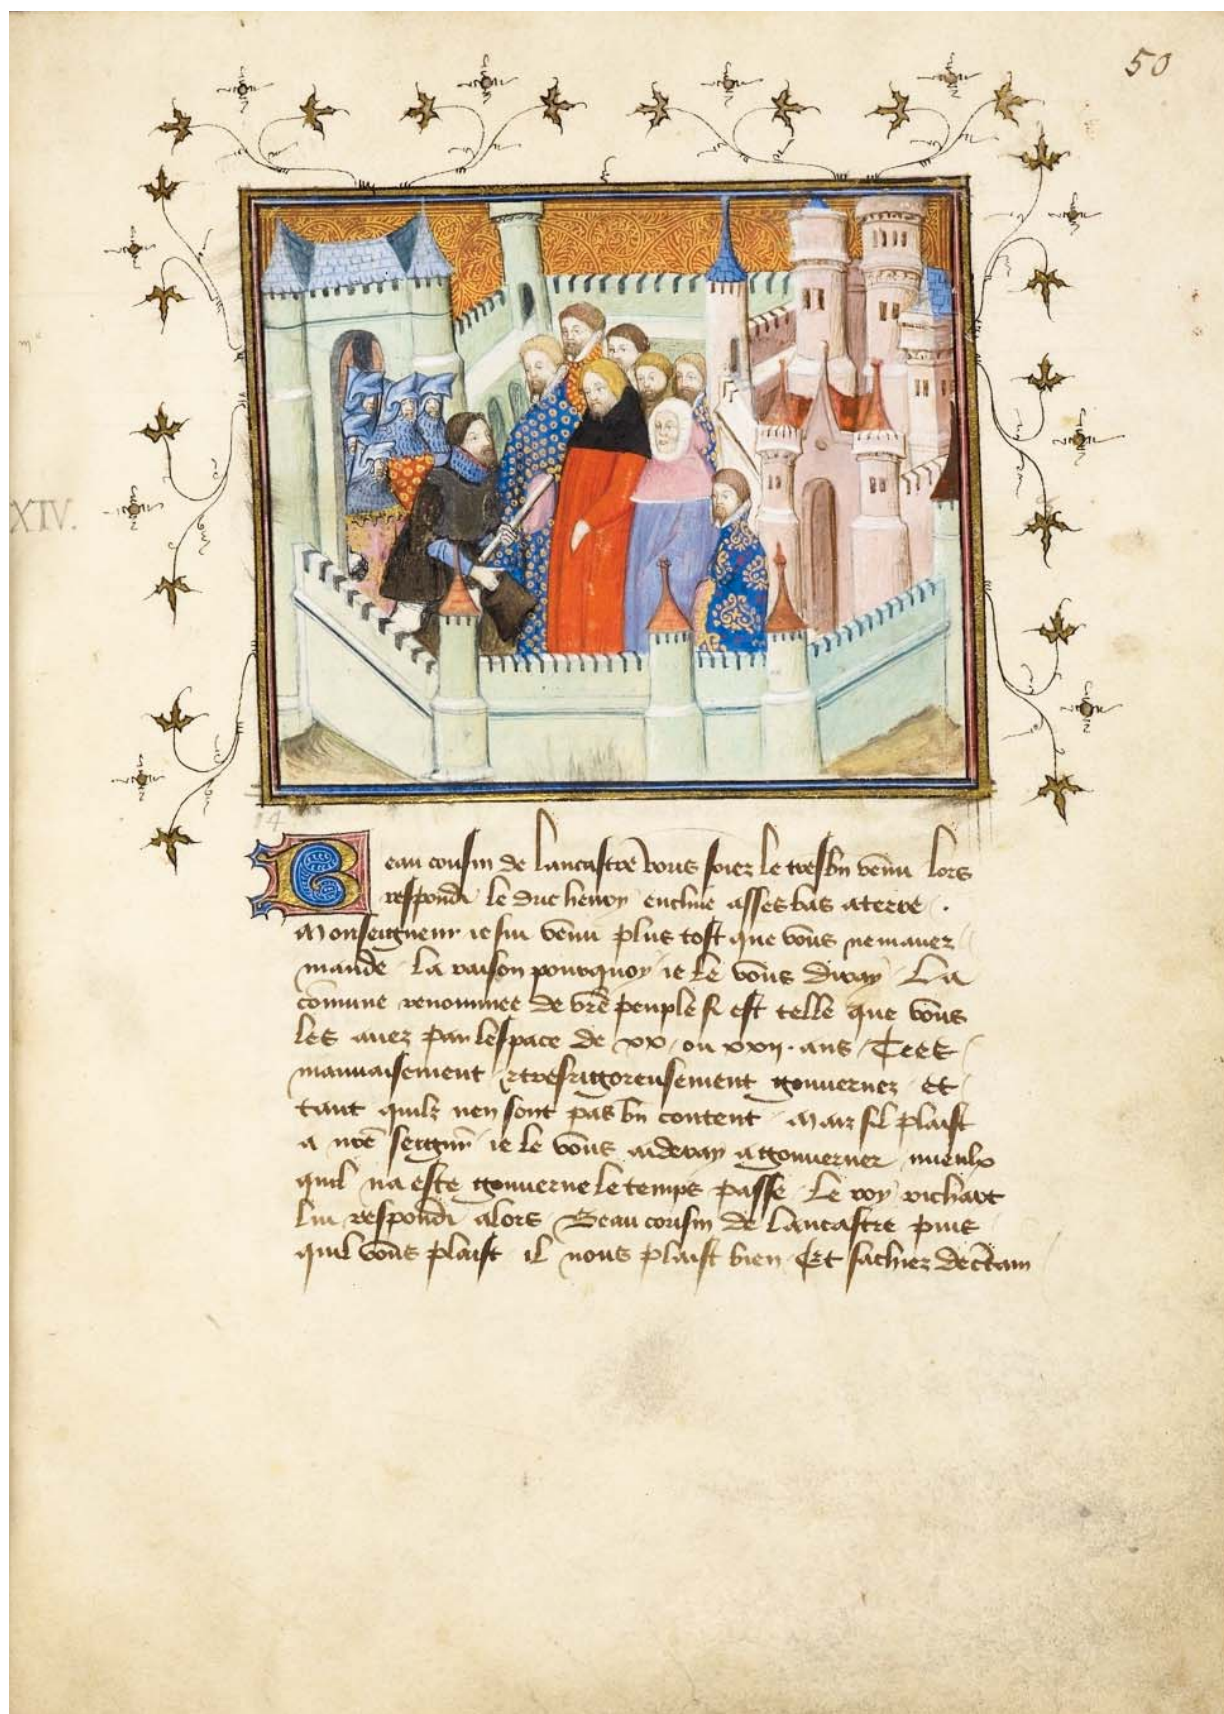 50
XIV.
14
Beau cousin de lancastre vous soiez le tresbn venu lors
respondi le duc henry encline asses bas a terre .
Monseigneur ie sui venu plus tost que vous ne mauez
mande la raison pourquoy ie le vous diray La
comune renommee de vre peuple si est telle que vous
les auez par lespace de xx ou xxij. ans Tres
mauuaisement et tresrigoreusement gouuernez et
tant quilz nen sont pas bn content Mais sil plaist
a nre seigneur ie le vous aideray a gouuerner mieulx
quil na este gouuerne le temps passe Le roy richart
lui respondi alors Beau cousin de lancastre puis
quil vous plaist il nous plaist bien Et sachiez de certain